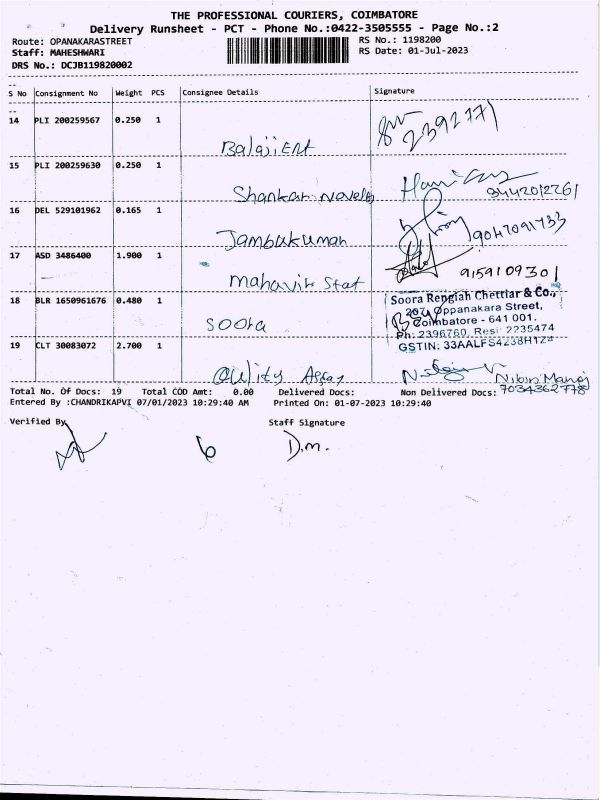 THE PROFESSIONAL COURIERS, COIMBATORE
Delivery Runsheet - PCT - Phone No.:0422-3505555 - Page No.:2
Route: OPANAKARASTREET
RS No.: 1198200
Staff: MAHESHWARI
RS Date: 01-Jul-2023
DRS No.: DCJB119820002
S No Consignment No Weight PCS Consignee Details Signature
14 PLI 200259567 0.250 1
Balaji Ent
2392771
15 PLI 200259630 0.250 1
Shankar Novelty
9442012261
16 DEL 529101962 0.165 1
Jambukumar
9047091733
17 ASD 3486400 1.900 1
Mahavir Stat
9159109301
18 BLR 1650961676 0.480 1
Soora
Soora Rengiah Chettiar & Co.,
207, Oppanakara Street,
Coimbatore - 641 001.
Ph: 2396760, Resi: 2235474
GSTIN: 33AALFS4238H1Z4
19 CLT 30083072 2.700 1
Quality Assay
Nibin Manoj
7034362778
Total No. Of Docs: 19 Total COD Amt: 0.00 Delivered Docs: Non Delivered Docs:
Entered By :CHANDRIKAPVI 07/01/2023 10:29:40 AM Printed On: 01-07-2023 10:29:40
Verified By
Staff Signature
D.m.